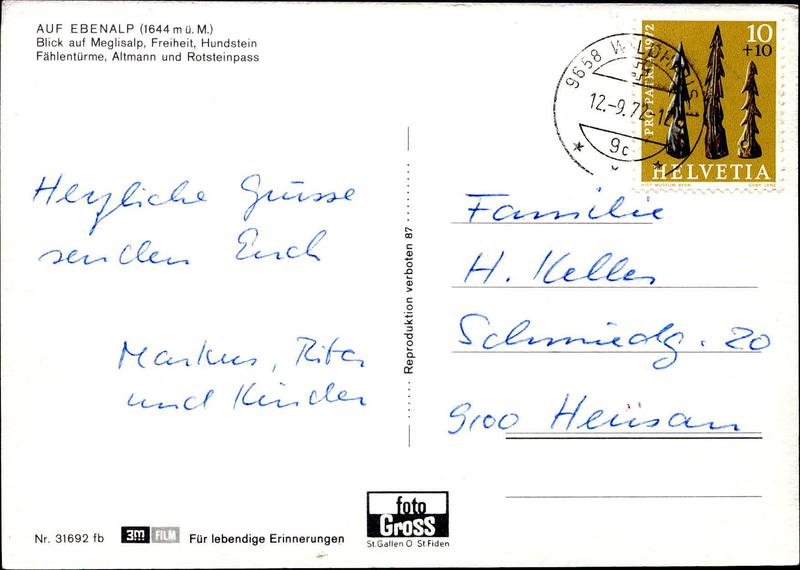 AUF EBENALP (1644 m ü. M.)
Blick auf Meglisalp, Freiheit, Hundstein
Fählentürme, Altmann und Rotsteinpass
PRO PATRIA 1972
10
+10
HELVETIA
HIST. MUSEUM BERN
GEBR. JENZ
9658 WILDHAUS 1
12.-9.72.-12
9c
Herzliche Grüsse
senden Euch
Markus, Rita
und Kinder
Reproduktion verboten 87
Familie
H. Keller
Schmiedg. 20
9100 Herisau
Nr. 31692 fb
3M FILM
Für lebendige Erinnerungen
foto
Gross
St.Gallen O St.Fiden